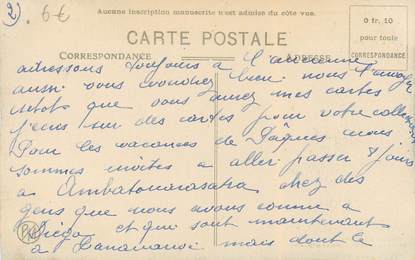 2) 6€
Aucune inscription manuscrite n'est admise du côté vue.
0 fr. 10
pour toute
CORRESPONDANCE
CARTE POSTALE
CORRESPONDANCE ADRESSE
adressons toujours à
aussi vous voudrez bien nous
que vous aurez mes cartes
j'écris sur des cartes pour votre
Pour les vacances de Pâques nous
sommes invités à aller passer 8 jours
à chez des
gens que nous avons connu à
Diego et qui sont maintenant
à mais dont le